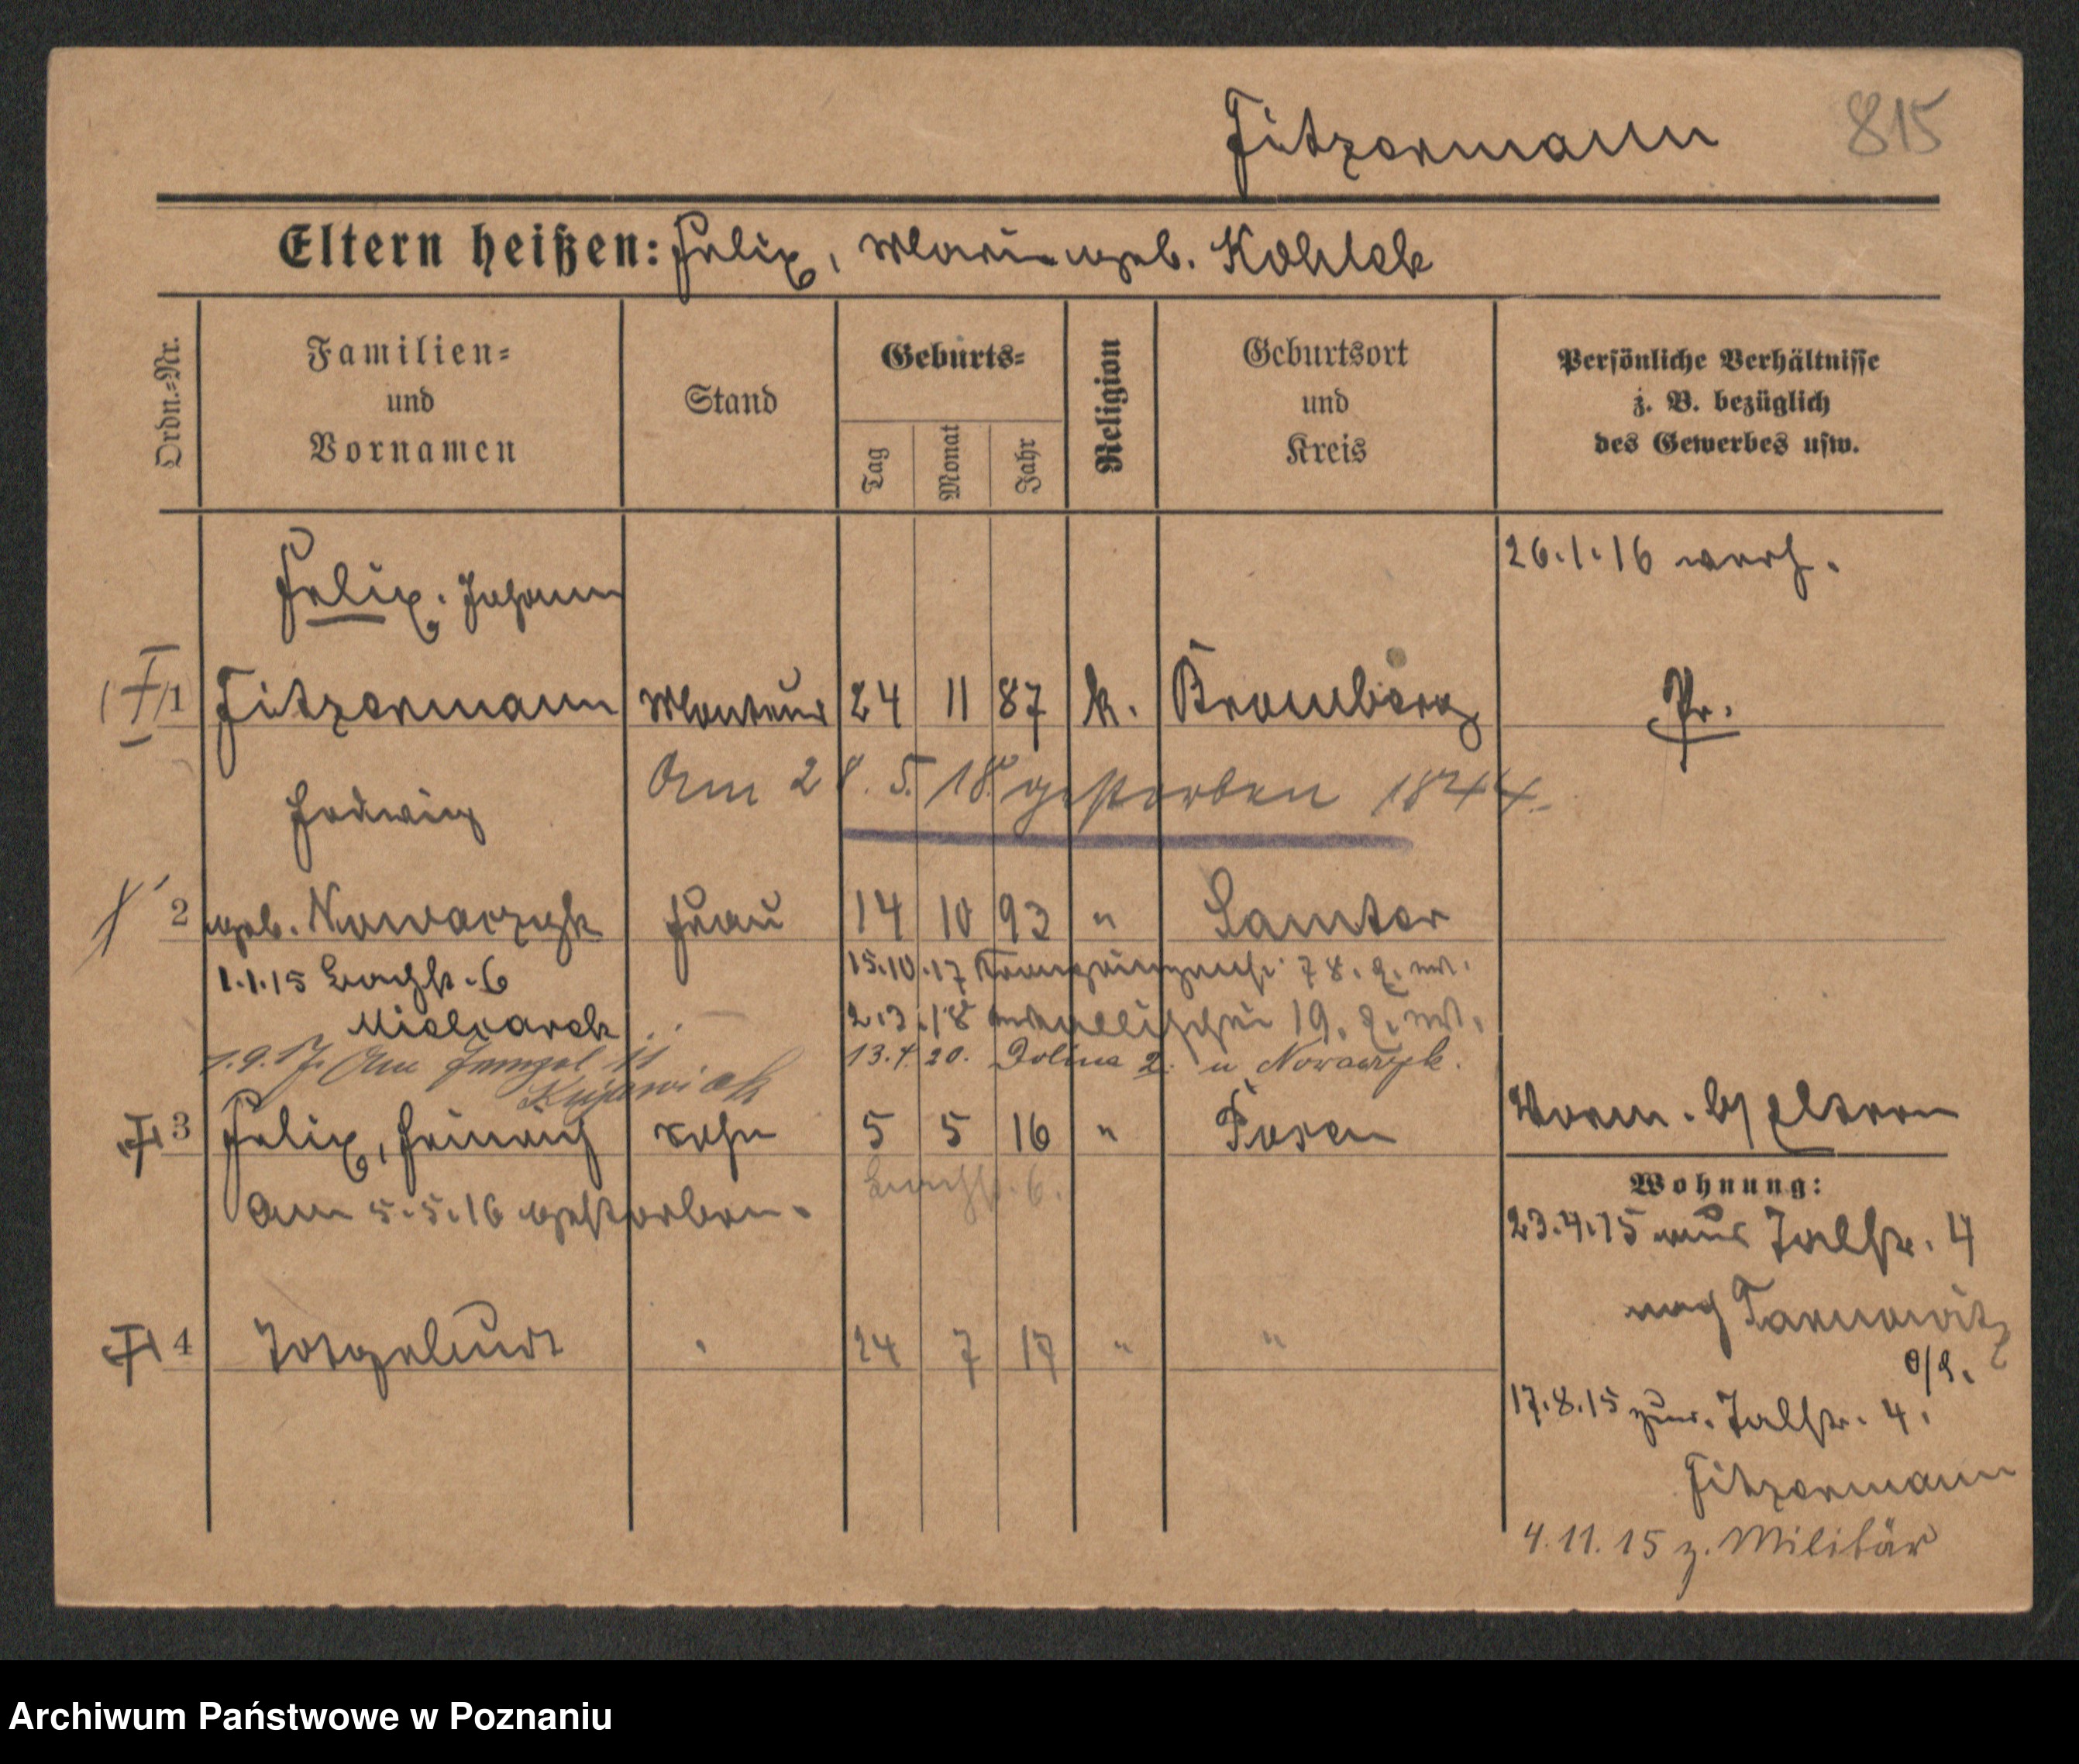 Fitzermann 815
Eltern heißen: Felix, Marie geb. Kohlek
Ordn.-Nr.
Familien-
und
Vornamen
Stand
Geburts-
Tag
Monat
Jahr
Religion
Geburtsort
und
Kreis
Persönliche Verhältnisse
z. B. bezüglich
des Gewerbes usw.
26.1.16 verh.
Felix. Johann
1 Fitzermann Monteur 24 11 87 k. Bromberg Pr.
Am 28.5.18 gestorben 1844.
Hedwig
2 geb. Nowaczyk Frau 14 10 93 " Samter
1.1.15 Bachstr. 6
Mielcarek
15.10.17 78.
2.3.18 19.
1.9.17. Am 11
Kujawiak
13.4.20. Dolina 2. u Nowaczyk.
3 Felix, Heinrich Sohn 5 5 16 " Posen Vorm. by Eltern
Bachstr. 6.
Am 5.5.16 gestorben.
Wohnung:
23.4.15 aus Talstr. 4
nach Tarnowitz
O/S.
4 Totgeburt 24 7 17 " "
17.8.15 zur. Talstr. 4.
Fitzermann
4.11.15 z. Militär
Archiwum Państwowe w Poznaniu